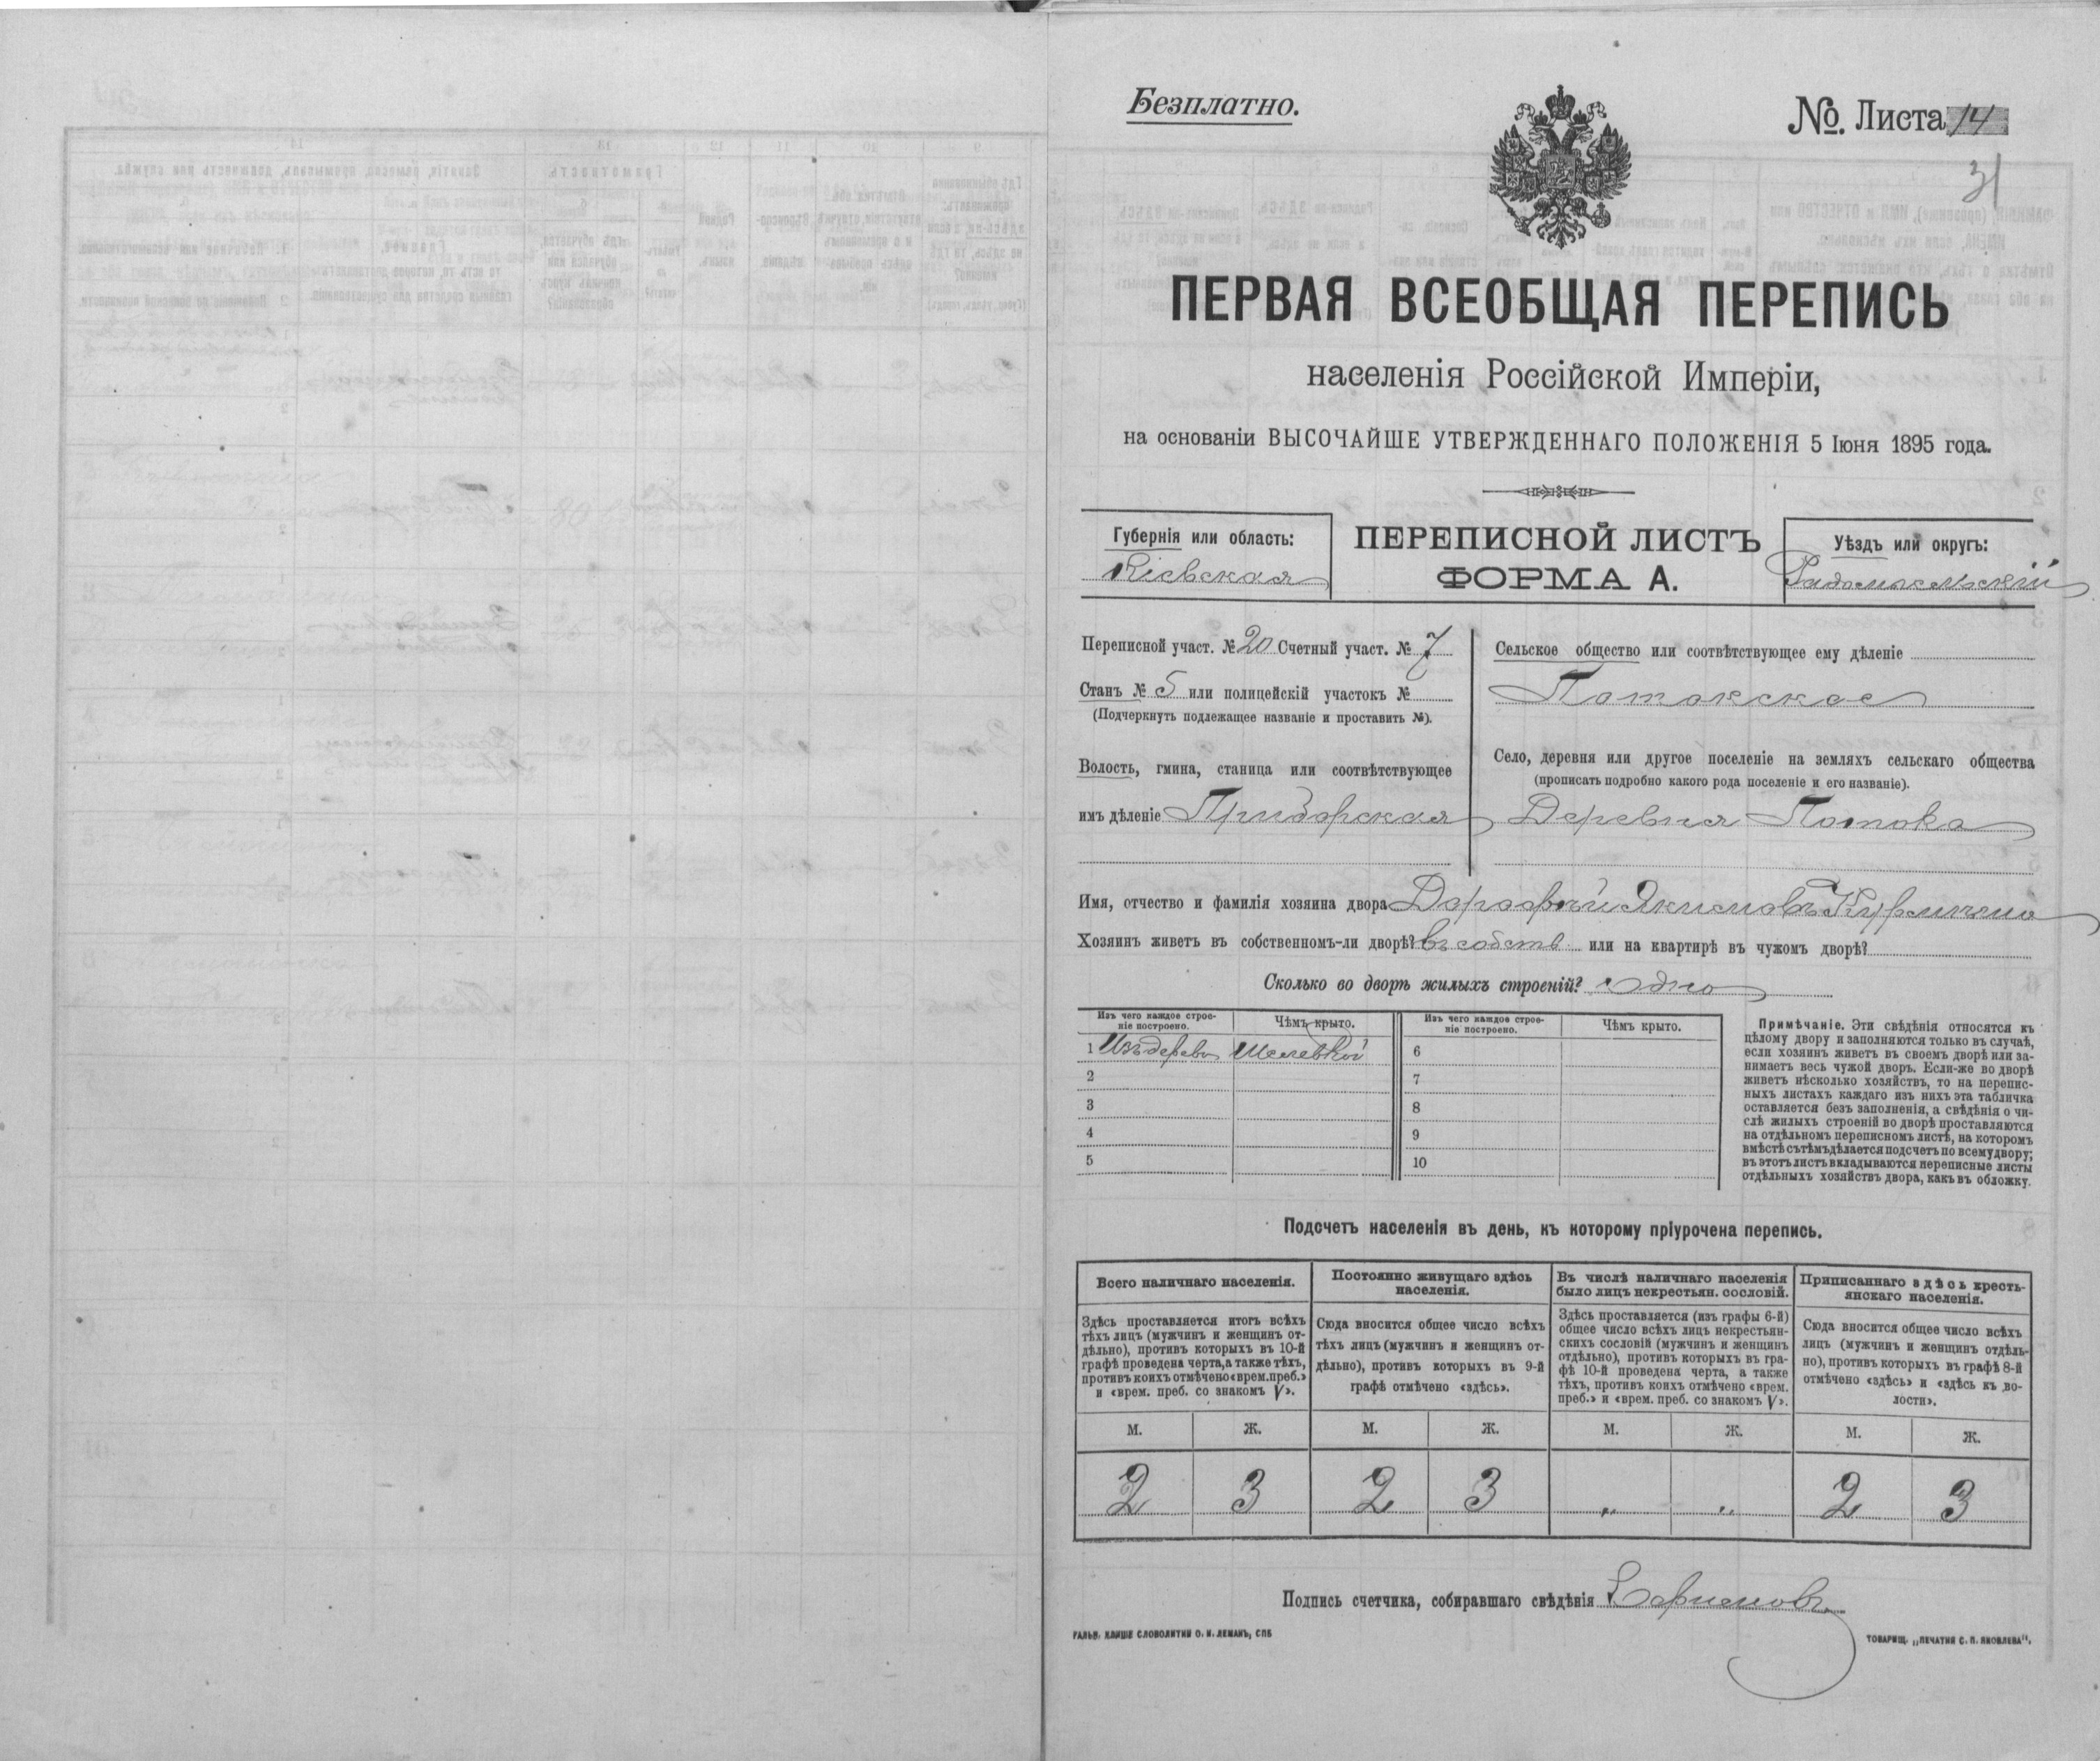 Безплатно.
№. Листа 14
31
ПЕРВАЯ ВСЕОБЩАЯ ПЕРЕПИСЬ
населенія Россійской Имперіи,
на основаніи ВЫСОЧАЙШЕ УТВЕРЖДЕННАГО ПОЛОЖЕНІЯ 5 Іюня 1895 года.
Губернія или область:
Кіевская
ПЕРЕПИСНОЙ ЛИСТЪ
ФОРМА А.
Уѣздъ или округъ:
Радомысльскій
Переписной участ. № 20 Счетный участ. № 7
Станъ № 5 или полицейскій участокъ №
(Подчеркнуть подлежащее названіе и проставить №).
Волость, гмина, станица или соотвѣтствующее
имъ дѣленіе Приборская
Сельское общество или соотвѣтствующее ему дѣленіе
Потокское
Село, деревня или другое поселеніе на земляхъ сельскаго общества
(прописать подробно какого рода поселеніе и его названіе).
Деревня Потока
Имя, отчество и фамилія хозяина двора Дорофѣй Якимовъ
Хозяинъ живетъ въ собственномъ-ли дворѣ? въ собств или на квартирѣ въ чужомъ дворѣ?
Сколько во дворѣ жилыхъ строеній? одно
Изъ чего каждое строе-
ніе построено.
Чѣмъ крыто.
Изъ чего каждое строе-
ніе построено.
Чѣмъ крыто.
1 Изъ дерева
6
2
7
3
8
4
9
5
10
Примѣчаніе. Эти свѣдѣнія относятся къ
цѣлому двору и заполняются только въ случаѣ,
если хозяинъ живетъ въ своемъ дворѣ или за-
нимаетъ весь чужой дворъ. Если-же во дворѣ
живетъ нѣсколько хозяйствъ, то на перепис-
ныхъ листахъ каждаго изъ нихъ эта табличка
оставляется безъ заполненія, а свѣдѣнія о чи-
слѣ жилыхъ строеній во дворѣ проставляются
на отдѣльномъ переписномъ листѣ, на которомъ
вмѣстѣ съ тѣмъ дѣлается подсчетъ по всему двору;
въ этотъ листъ вкладываются переписные листы
отдѣльныхъ хозяйствъ двора, какъ въ обложку.
Подсчетъ населенія въ день, къ которому пріурочена перепись.
Всего наличнаго населенія.
Здѣсь проставляется итогъ всѣхъ
тѣхъ лицъ (мужчинъ и женщинъ от-
дѣльно), противъ которыхъ въ 10-й
графѣ проведена черта, а также тѣхъ,
противъ коихъ отмѣчено «врем. преб.»
и «врем. преб. со знакомъ V».
Постоянно живущаго здѣсь
населенія.
Сюда вносится общее число всѣхъ
тѣхъ лицъ (мужчинъ и женщинъ от-
дѣльно), противъ которыхъ въ 9-й
графѣ отмѣчено «здѣсь».
Въ числѣ наличнаго населенія
было лицъ некрестьян. сословій.
Здѣсь проставляется (изъ графы 6-й)
общее число всѣхъ лицъ некрестьян-
скихъ сословій (мужчинъ и женщинъ
отдѣльно), противъ которыхъ въ гра-
фѣ 10-й проведена черта, а также
тѣхъ, противъ коихъ отмѣчено «врем.
преб.» и «врем. преб. со знакомъ V».
Приписаннаго здѣсь кресть-
янскаго населенія.
Сюда вносится общее число всѣхъ
лицъ (мужчинъ и женщинъ отдѣль-
но), противъ которыхъ въ графѣ 8-й
отмѣчено «здѣсь» и «здѣсь къ во-
лости».
М. Ж. М. Ж. М. Ж. М. Ж.
2 3 2 3 „ „ 2 3
Подпись счетчика, собиравшаго свѣдѣнія
ГАЛЬВ. КЛИШЕ СЛОВОЛИТНИ О. И. ЛЕМАНЪ, СПБ
ТОВАРИЩ. „ПЕЧАТНЯ С. П. ЯКОВЛЕВА".